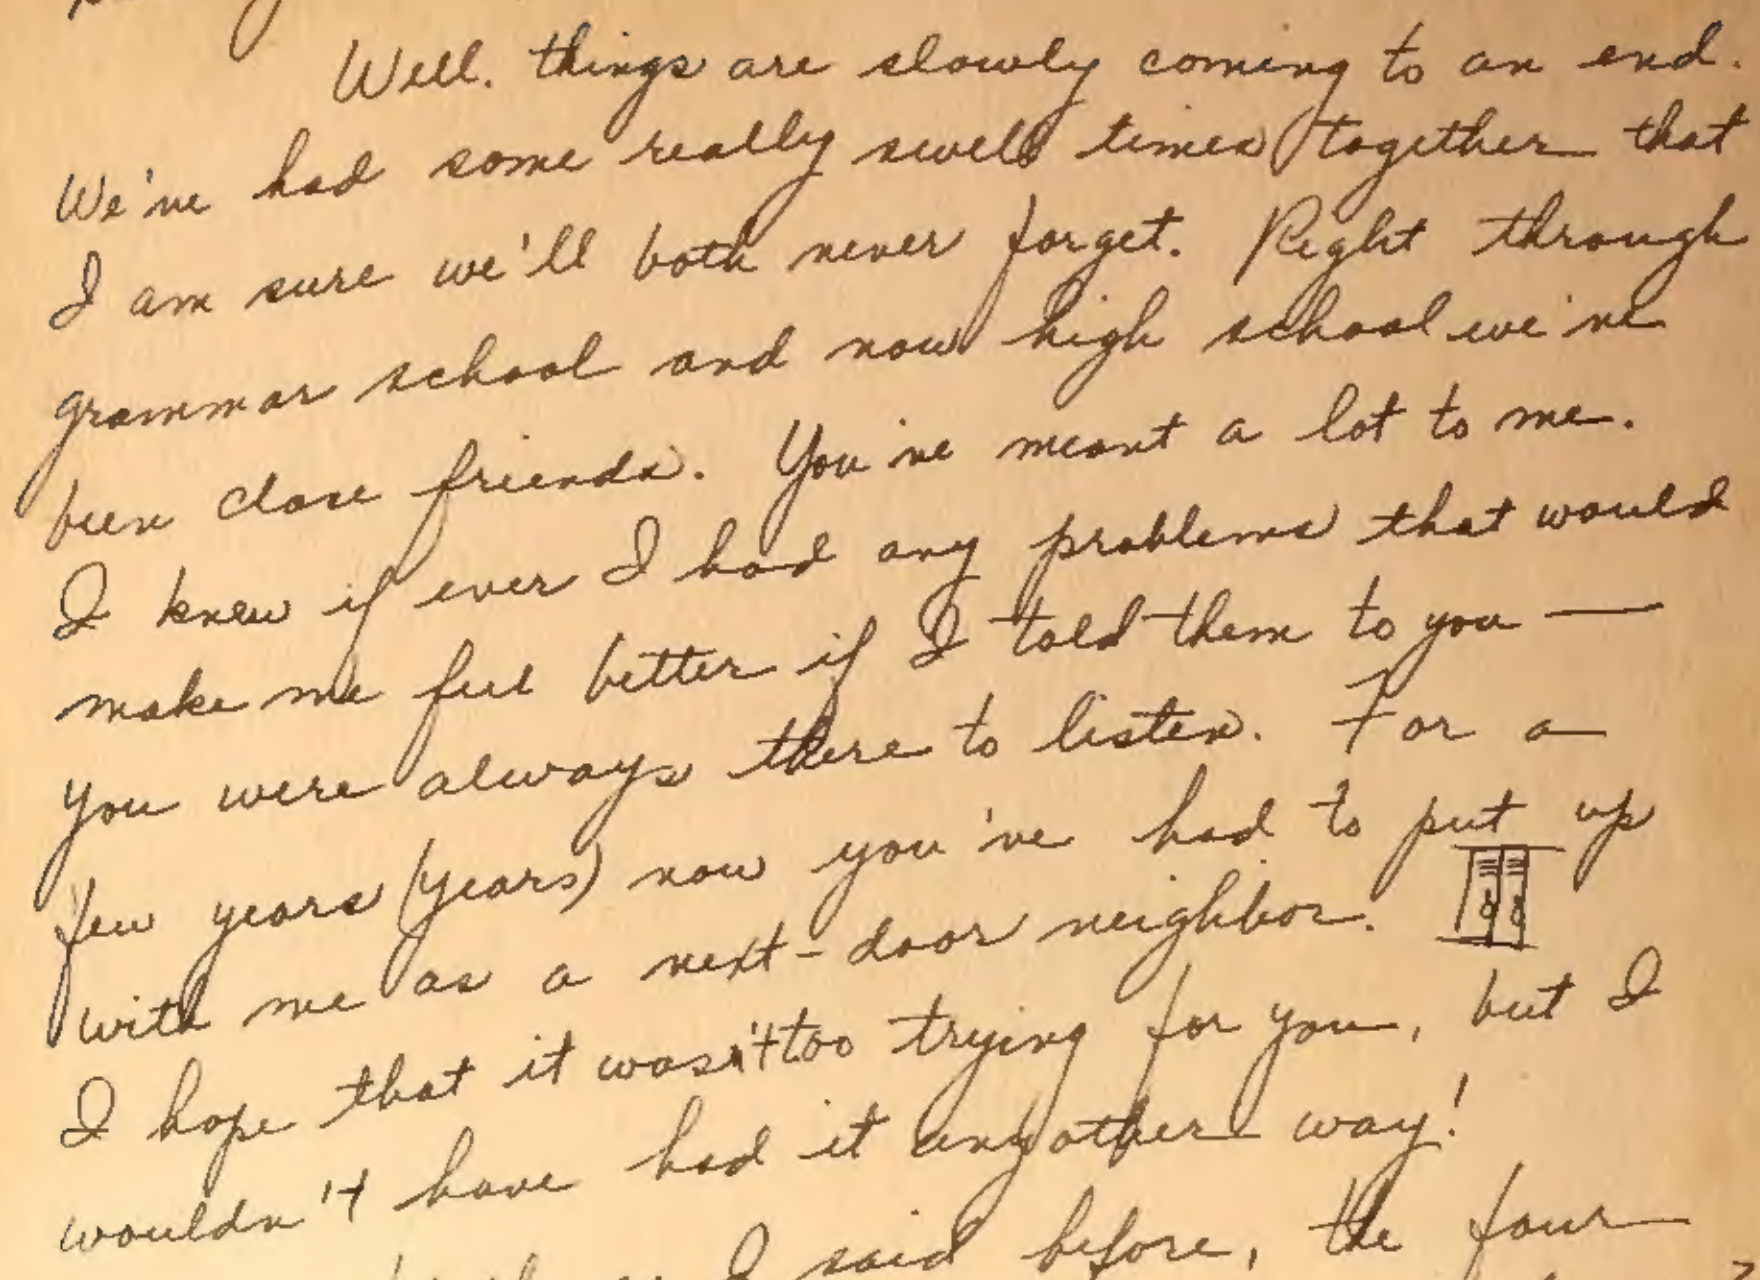 Well. things are slowly coming to an end.
We've had some really swell times together that
I am sure we'll both never forget. Right through
grammar school and now high school we've
been close friends. You've meant a lot to me.
I knew if ever I had any problems that would
make me feel better if I told them to you —
you were always there to listen. For a
few years (years) now you've had to put up
with me as a next-door neighbor.
I hope that it wasn't too trying for you, but I
wouldn't have had it any other way!
I said before, the four